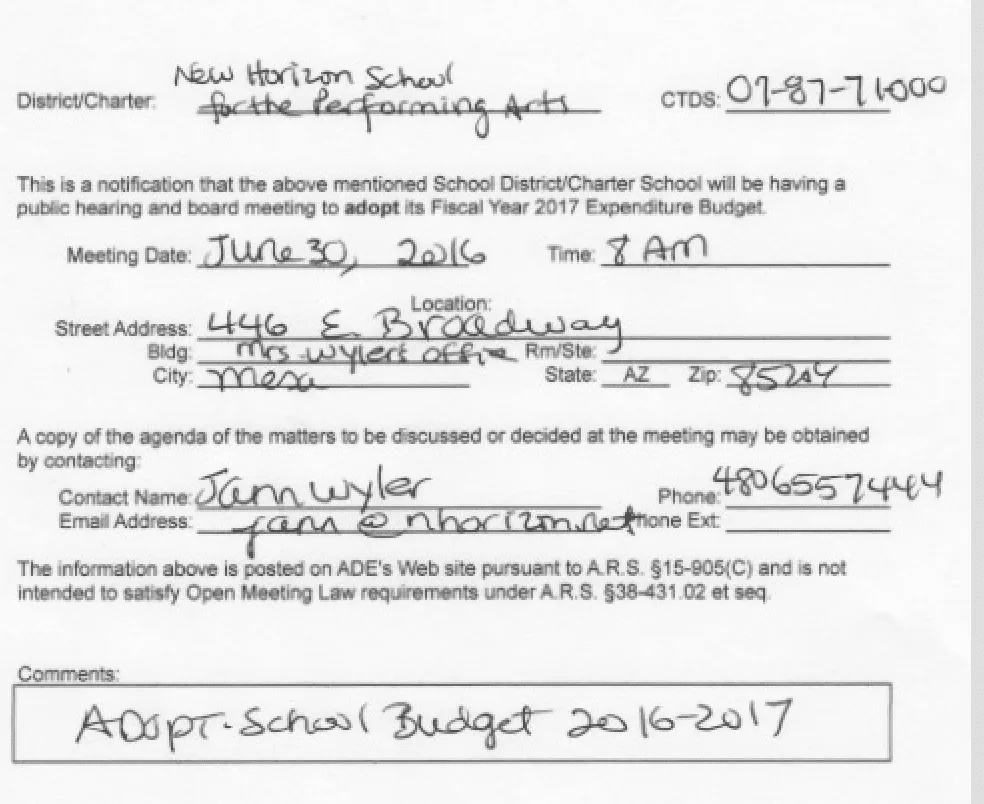 New Horizon School
District/Charter: for the Performing Arts CTDS: 07-87-71-000
This is a notification that the above mentioned School District/Charter School will be having a
public hearing and board meeting to adopt its Fiscal Year 2017 Expenditure Budget.
Meeting Date: June 30, 2016 Time: 8 AM
Location:
Street Address: 446 E. Broadway
Bldg: Mrs. Wyler's office Rm/Ste:
City: Mesa State: AZ Zip: 85204
A copy of the agenda of the matters to be discussed or decided at the meeting may be obtained
by contacting:
Contact Name: Jann Wyler Phone: 4806557444
Email Address: jann@nhorizon.net Phone Ext:
The information above is posted on ADE's Web site pursuant to A.R.S. §15-905(C) and is not
intended to satisfy Open Meeting Law requirements under A.R.S. §38-431.02 et seq.
Comments:
ADOPT-School Budget 2016-2017